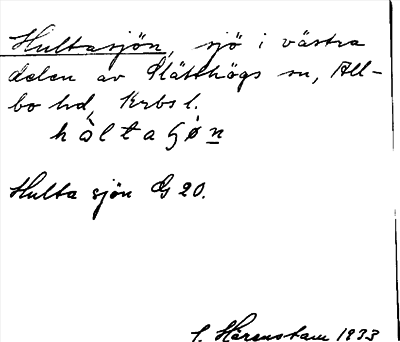 Hultasjön, sjö i västra
delen av Slätthögs sn, All-
bo hd, Krbs l.
hùltaʃø̀n
Hulta sjön G 20.
S. Härenstam 1933